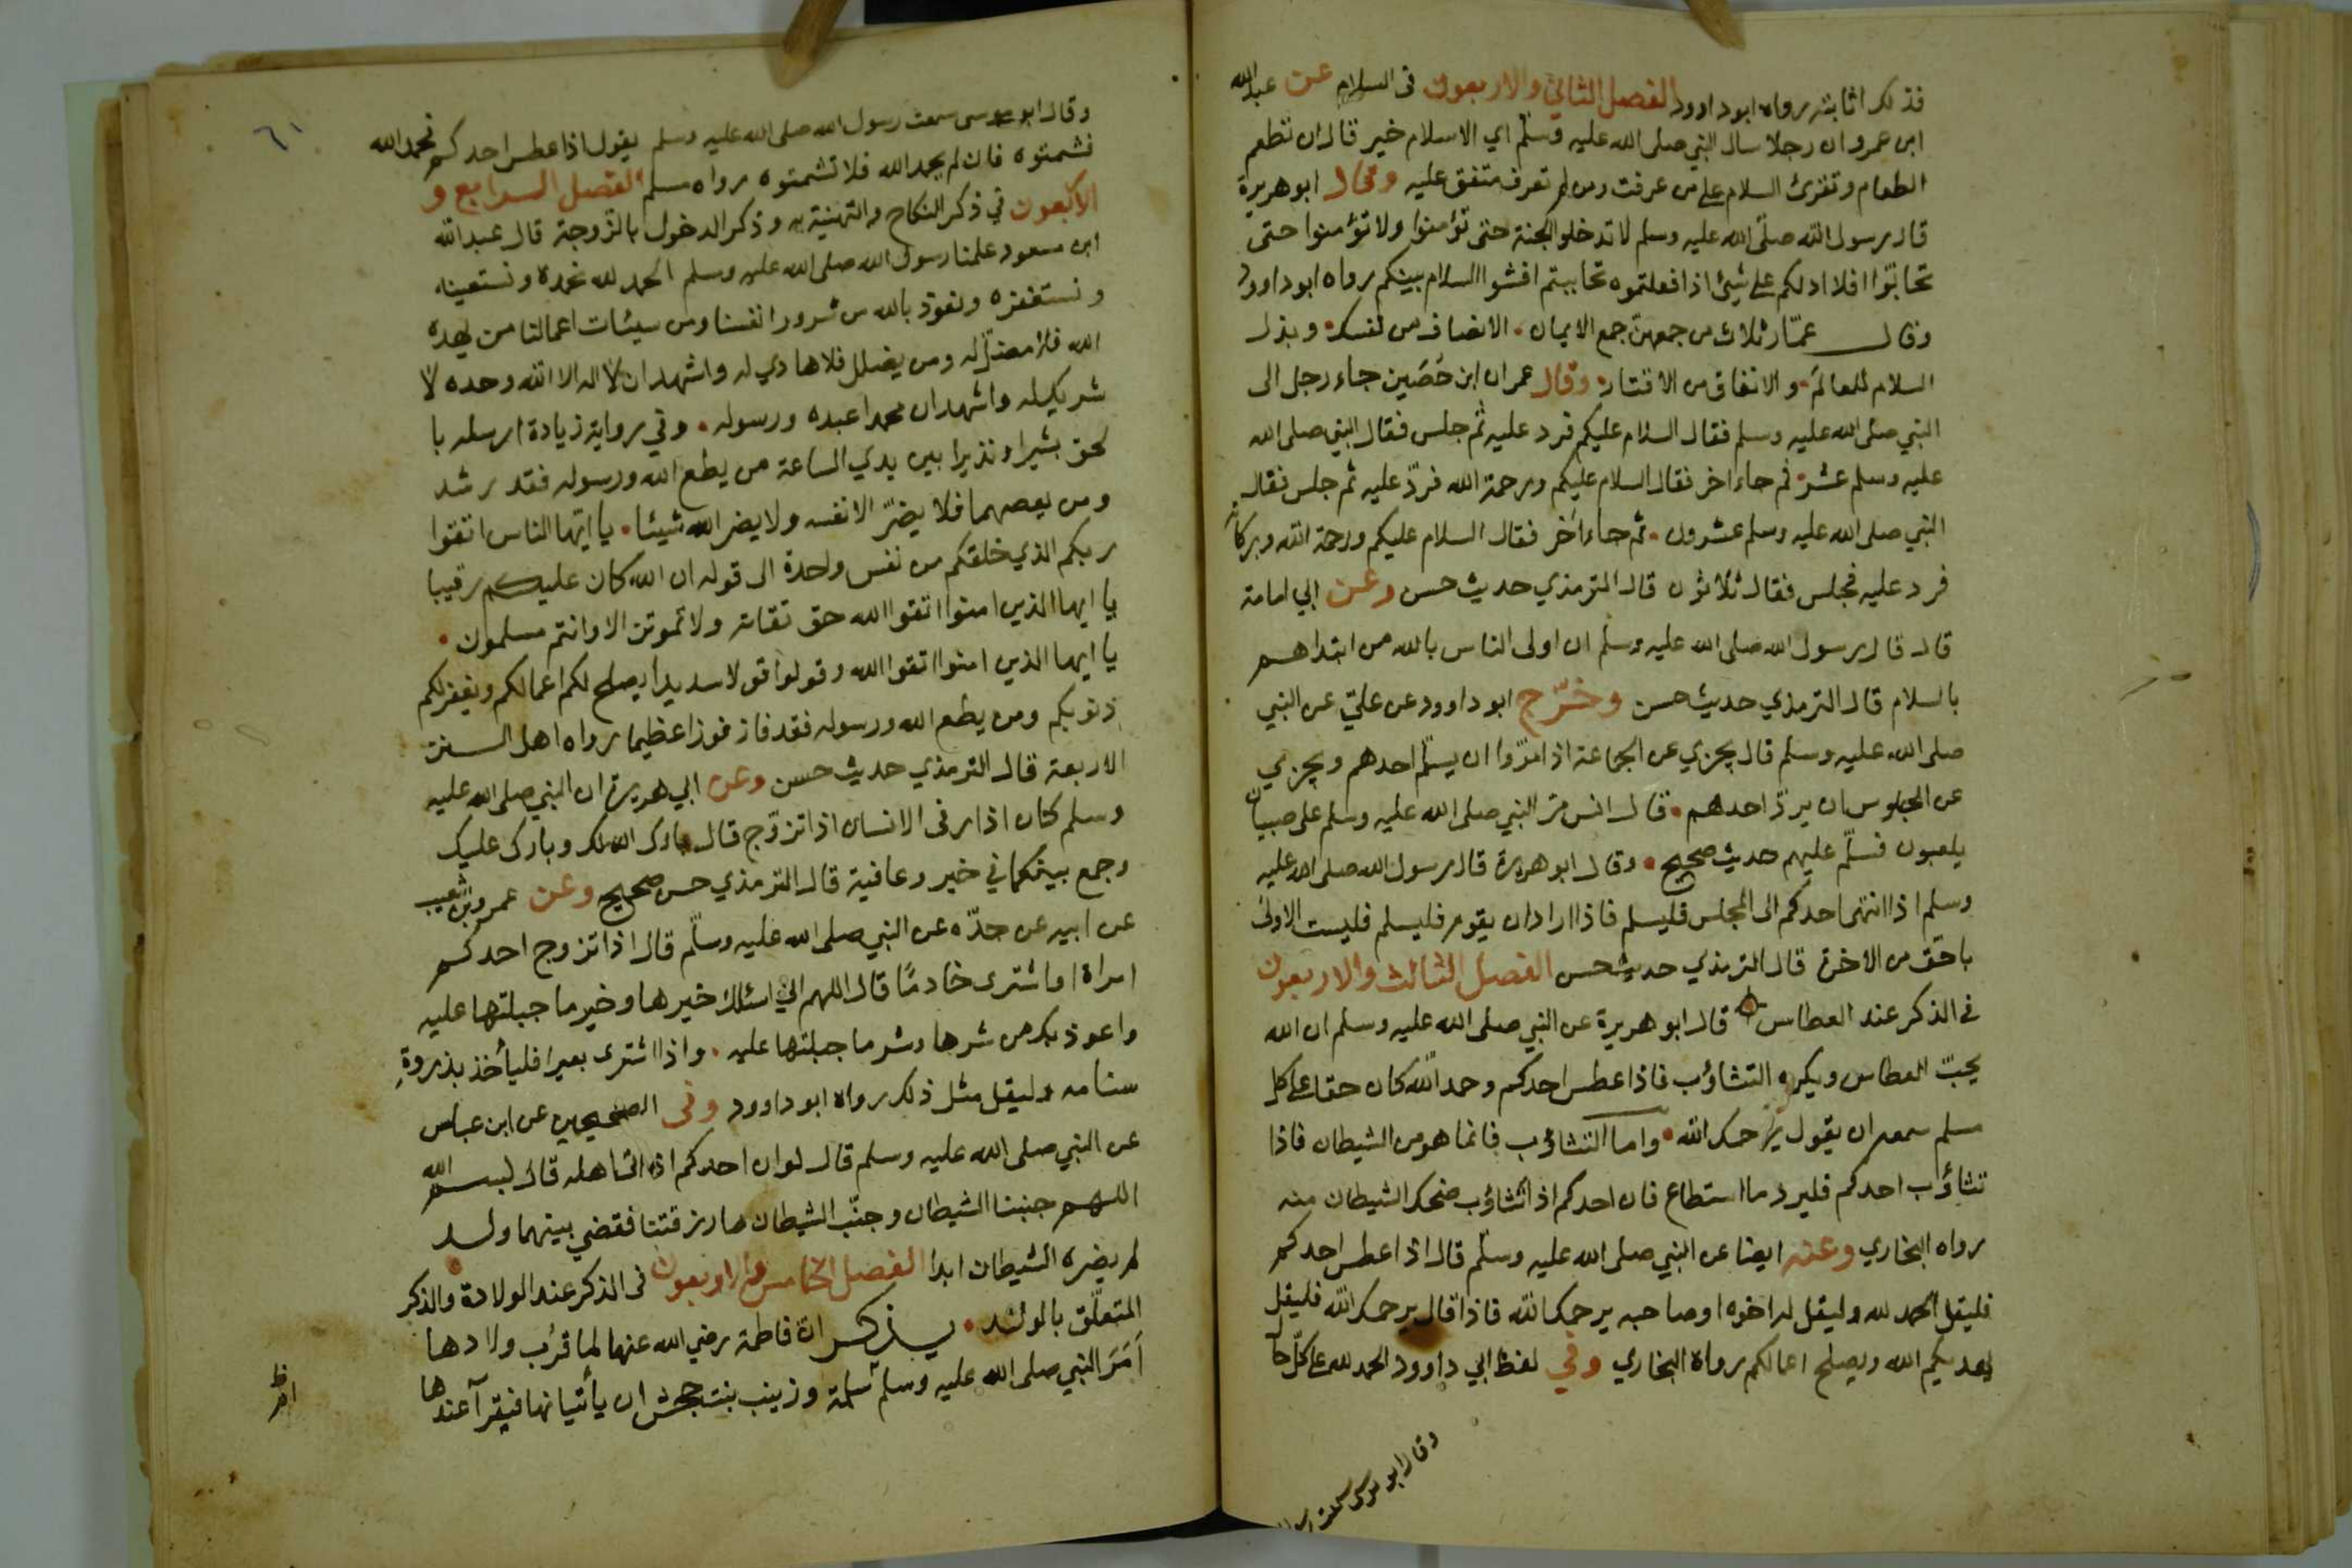 فذلك اثابته رواه ابو داوود الفصل الثاني والاربعون في السلام عن عبدالله
ابن عمرو ان رجلا سال النبي صلى الله عليه وسلّم اي الاسلام خير قال ان تطعم
الطعام وتقرئ السلام على من عرفت ومن لم تعرف متفق عليه وقال ابو هريرة
قال رسول الله صلّى الله عليه وسلم لا تدخلوا الجنة حتى تؤمنوا ولا تؤمنوا حتى
تحابّوا افلا ادلكم على شيئ اذا فعلتموه تحاببتم افشوا السلام بينكم رواه ابو داوود
وقال عمّار ثلاث من جمعهنّ جمع الايمان. الانصاف من نفسك. وبذل
السلام للعالم. والانفاق من الاقتار. وقال عمران ابن حُصَين جاء رجل الى
النبي صلى الله عليه وسلم فقال السلام عليكم فرد عليه ثم جلس فقال النبي صلى الله
عليه وسلم عشر. ثم جاء اخر فقال السلام عليكم ورحمة الله فردّ عليه ثم جلس فقال
النبي صلى الله عليه وسلم عشرون. ثم جاء اٰخر فقال السلام عليكم ورحمة الله وبركاته
فرد عليه فجلس فقال ثلاثون قال الترمذي حديث حسن وعن ابي امامة
قال قال رسول الله صلى الله عليه وسلم ان اولى الناس بالله من ابتداهم
بالسلام قال الترمذي حديث حسن وخرّج ابو داوود عن عليّ عن النبي
صلى الله عليه وسلم قال يجزي عن الجماعة اذا مرّوا ان يسلّم احدهم ويجزي
عن الجلوس ان يردّ احدهم. قال انس مرّ النبي صلى الله عليه وسلم على صبيان
يلعبون فسلّم عليهم حديث صحيح. وقال ابو هريرة قال رسول الله صلى الله عليه
وسلم اذا انتهى احدكم الى المجلس فليسلم فاذا اراد ان يقوم فليسلم فليست الاولى
باحق من الاخرة قال الترمذي حديث حسن الفصل الثالث والاربعون
في الذكر عند العطاس قال ابو هريرة عن النبي صلى الله عليه وسلم ان الله
يحبّ العطاس ويكره التثاؤب فاذا عطس احدكم وحمد الله كان حقا على كل
مسلم سمعه ان يقول يرحمك الله. واما التثاؤب فانما هو من الشيطان فاذا
تثاؤب احدكم فليرد ما استطاع فان احدكم اذا تثاؤب ضحك الشيطان منه
رواه البخاري وعنه ايضا عن النبي صلى الله عليه وسلّم قال اذا عطس احدكم
فليقل الحمد لله وليقل له اخوه او صاحبه يرحمك الله فاذا قال يرحمك الله فليقل
يهديكم الله ويصلح اعمالكم رواه البخاري وفي لفظ ابي داوود الحمد لله على كلّ حال
وقال ابو موسى سمعت رسول
٦١
وقال ابو موسى سمعت رسول الله صلى الله عليه وسلم يقول اذا عطس احدكم فحمد الله
فشمتوه فان لم يحمد الله فلا تشمتوه رواه مسلم الفصل الرابع و
الاربعون في ذكر النكاح والتهنية به وذكر الدخول بالزّوجة قال عبد الله
ابن مسعود علمنا رسول الله صلى الله عليه وسلم الحمد لله نحمده ونستعينه
ونستغفره ونعوذ بالله من شرور انفسنا ومن سيئات اعمالنا من يهده
الله فلا مضلّ له ومن يضلل فلا هادي له واشهد ان لا اله الا الله وحده لا
شريك له واشهد ان محمدا عبده ورسوله. وفي رواية زيادة ارسله با
لحق بشيرا ونذيرا بين يدي الساعة من يطع الله ورسوله فقد رشد
ومن يعصهما فلا يضرّ الا نفسه ولا يضر الله شيئا. يا ايّها الناس اتقوا
ربكم الذي خلقكم من نفس واحدة الى قوله ان الله كان عليكم رقيبا
يا ايها الذين امنوا اتقوا الله حق تقاته ولا تموتن الا وانتم مسلمون.
يا ايها الذين امنوا اتقوا الله وقولوا قولا سديدا يصلح لكم اعمالكم ويغفر لكم
ذنوبكم ومن يطع الله ورسوله فقد فاز فوزا عظيما رواه اهل السنن
الاربعة قال الترمذي حديث حسن وعن ابي هريرة ان النبي صلى الله عليه
وسلم كان اذا رفى الانسان اذا تزوّج قال بارك الله لك وبارك عليك
وجمع بينكما في خير وعافية قال الترمذي حسن صحيح وعن عمرو ابن شعيب
عن ابيه عن جدّه عن النبي صلى الله عليه وسلّم قال اذا تزوج احدكم
امراة او اشترى خادمًا قال اللهم اني اسئلك خيرها وخير ما جبلتها عليه
واعوذ بك من شرها وشر ما جبلتها عليه. واذا اشترى بعيرا فليأخذ بذروةِ
سنامه وليقل مثل ذلك رواه ابو داوود وفي الصحيحين عن ابن عباس
عن النبي صلى الله عليه وسلم قال لو ان احدكم اذا اتى اهله قال بسم الله
اللهم جنبنا الشيطان وجنّب الشيطان ما رزقتنا فقضي بينهما ولد
لم يضره الشيطان ابدا الفصل الخامس والاربعون في الذكر عند الولادة والذكر
المتعلّق بالولد. يذكر ان فاطمة رضي الله عنها لما قرُب ولادها
اَمَرَ النبي صلى الله عليه وسلم سلمة وزينب بنت جحش ان يأتيانها فيقرآ عندها